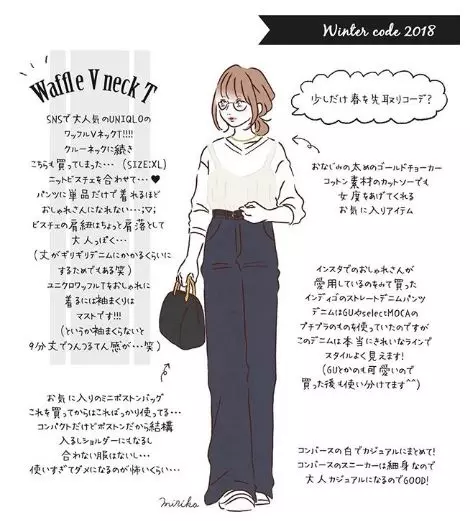 Winter code 2018
Waffle V neck T
SNSで大人気のUNIQLOの
ワッフルVネックT!!!!
クルーネックに続き
こちらも買ってしまった… (SIZE:XL)
ニットビスチェを合わせて…♥
パンツに単品だけで着れるほど
おしゃれさんになれない…;▽;
ビスチェの肩紐はちょっと肩落として
大人っぽく…
(丈がギリギリデニムにかかるくらいに
するためでもある笑)
ユニクロワッフルTをおしゃれに
着るには袖まくりは
マストです!!!
(というか袖まくらないと
9分丈でつんつるてん感が…笑)
お気に入りのミニボストンバッグ
これを買ってからはこればっかり使ってる…
コンパクトだけどボストンだから結構
入るしショルダーにもなるし
合わない服はないし…
使いすぎてダメになるのが怖いくらい…
少しだけ春を先取りコーデ?
おなじみの太めのゴールドチョーカー
コットン素材のカットソーでも
女度をあげてくれる
お気に入りアイテム
インスタでのおしゃれさんが
愛用しているのをみて買った
インディゴのストレートデニムパンツ
デニムはGUやselectMOCAの
プチプラのものを使っていたのですが
このデニムは本当にきれいなラインで
スタイルよく見えます!
(GUとかのも可愛いので
買った後も使い分けてます^^)
コンバースの白でカジュアルにまとめて!
コンバースのスニーカーは細身なので
大人カジュアルになるのでGOOD!
miriko